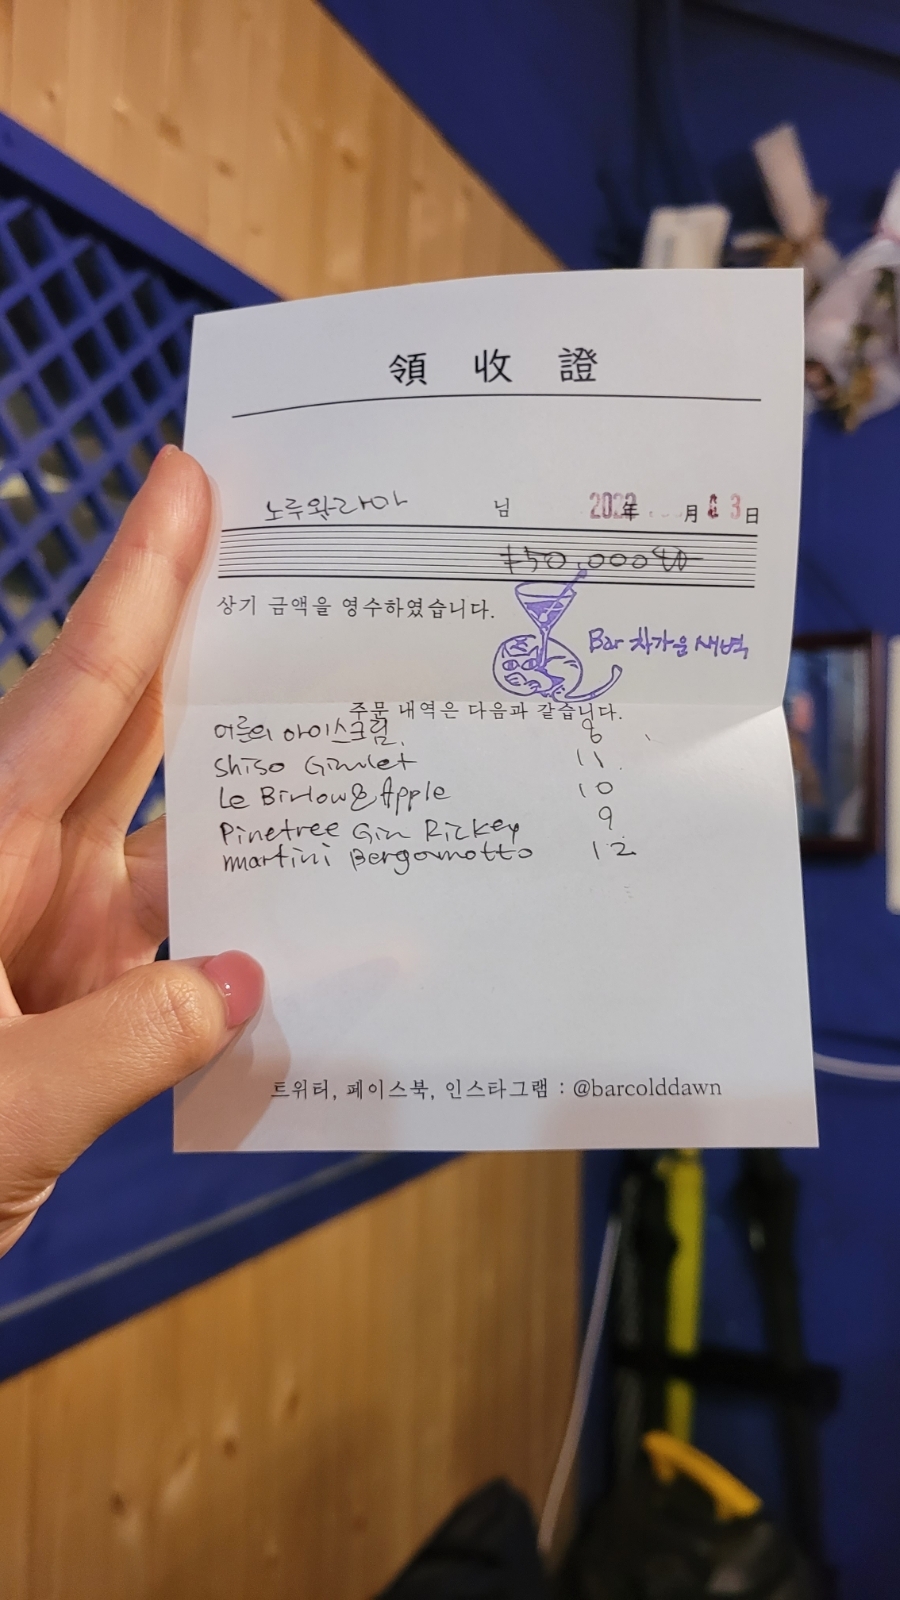 領 收 證
노루와라마 님 年 月 3日
₩50,000
상기 금액을 영수하였습니다.
Bar 차가운새벽
주문 내역은 다음과 같습니다.
어른의 아이스크림. 8
Shiso Gimlet 11
Le Birlow & Apple 10
Pinetree Gin Rickey 9
martini Bergamotto 12
트위터, 페이스북, 인스타그램 : @barcolddawn